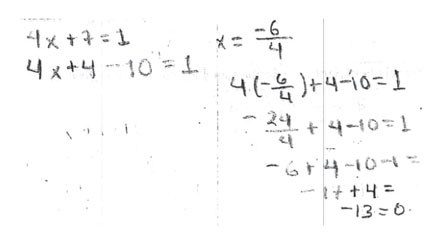 4x+7=1
4x+4-10=1
x = -6/4
4(-6/4)+4-10=1
-24/4 + 4-10=1
-6+4-10-1=
-17+4=
-13=0.